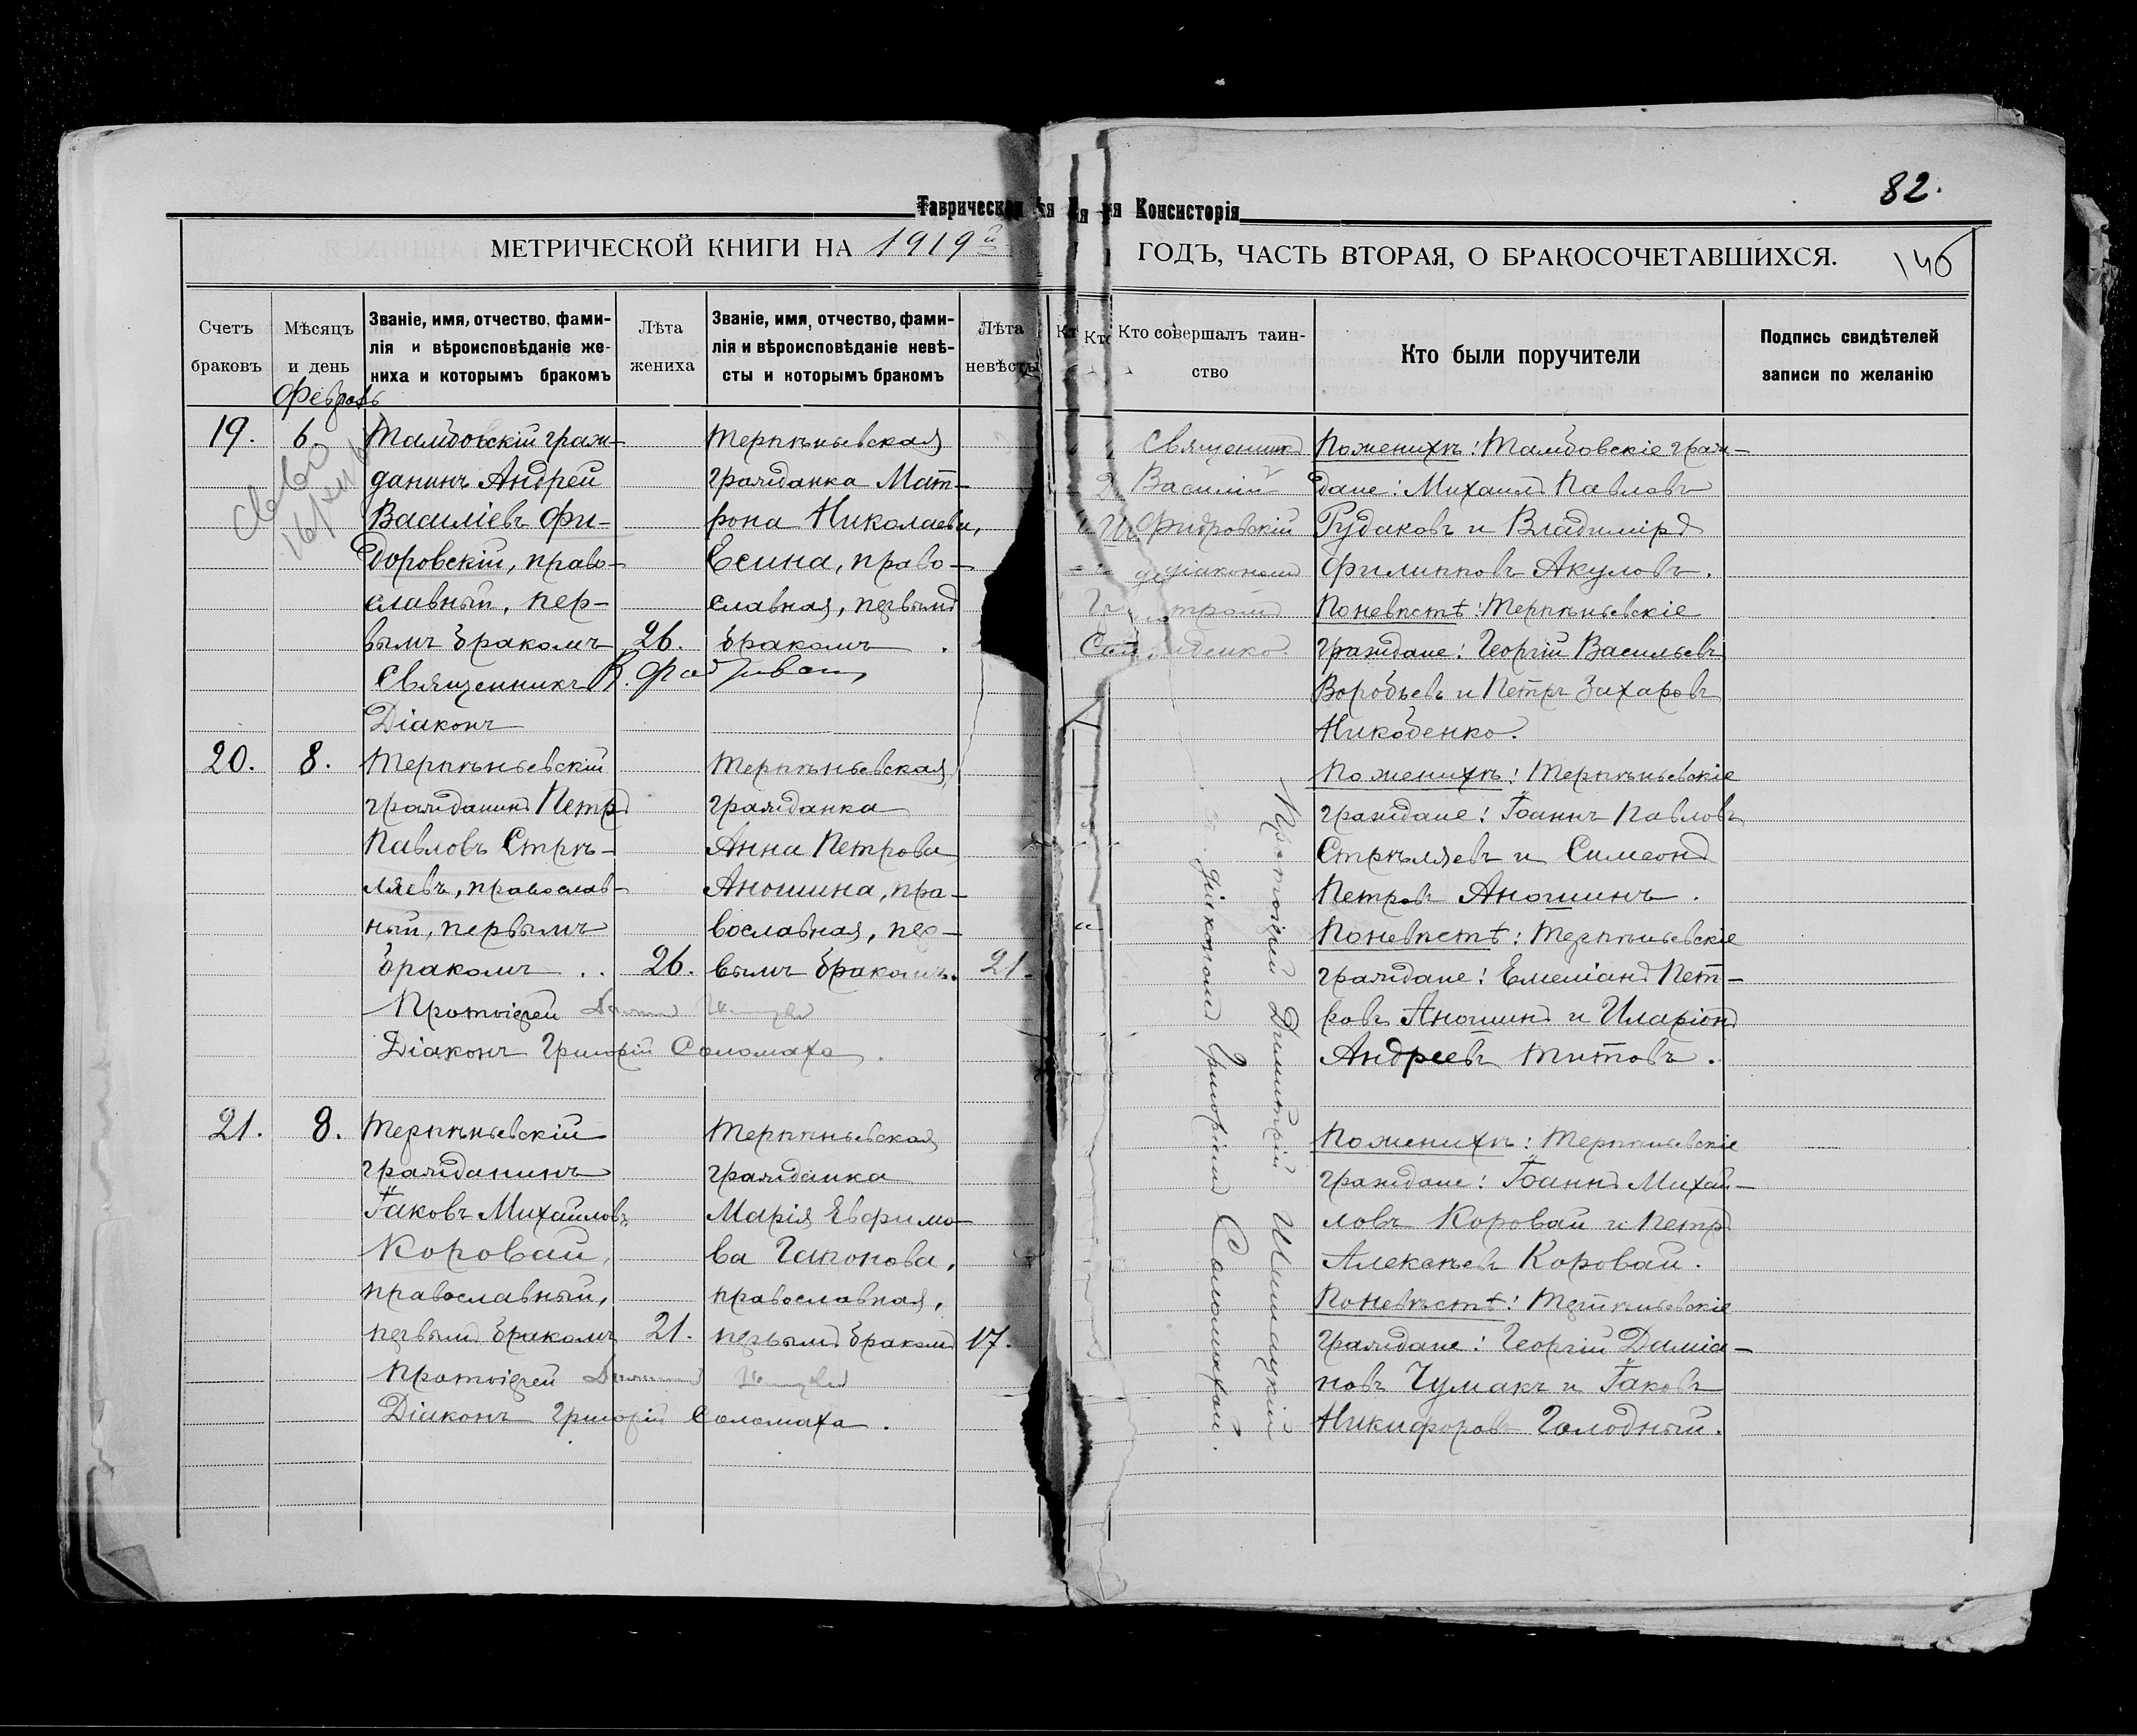 82.
Таврическая Консисторія
МЕТРИЧЕСКОЙ КНИГИ НА 1919й
ГОДЪ, ЧАСТЬ ВТОРАЯ, О БРАКОСОЧЕТАВШИХСЯ.
146
Счетъ браковъ
Мѣсяцъ и день
Званіе, имя, отчество, фами-
лія и вѣроисповѣданіе же-
ниха и которымъ бракомъ
Лѣта жениха
Званіе, имя, отчество, фами-
лія и вѣроисповѣданіе невѣ-
сты и которымъ бракомъ
Лѣта невѣсты
Кто совершалъ таин-
ство
Кто были поручители
Подпись свидѣтелей
записи по желанію
Февраль
19.
6.
Тамбовскій граж-
данинъ Андрей
Василіевъ Фи-
доровскій, право-
славный, пер-
вымъ бракомъ
26.
Терпѣньевская
гражданка Мат-
рона Николаева,
Есина, право-
славная, первымъ
бракомъ
Священникъ В.
Діаконъ
Священникъ
Василій
діакономъ
По женихѣ: Тамбовскіе граж-
дане: Михаилъ Павловъ
Рудаковъ и Владиміръ
Филипповъ Акуловъ.
По невѣстѣ: Терпѣньевскіе
граждане: Георгій Васильевъ
Воробьевъ и Петръ Захаровъ
Никобенко.
20.
8.
Терпѣньевскій
гражданинъ Петръ
Павловъ Стрѣ-
ляевъ, православ-
ный, первымъ
бракомъ
26.
Терпѣньевская
гражданка
Анна Петрова
Аношина, пра-
вославная, пер-
вымъ бракомъ.
21.
Протоіерей
Діаконъ Григорій Соломаха.
Протоіерей Димитрій
діакономъ Григоріемъ Соломахой.
По женихѣ: Терпѣньевскіе
граждане: Іоаннъ Павловъ
Стрѣляевъ и Симеонъ
Петровъ Аношинъ.
По невѣстѣ: Терпѣньевскіе
граждане: Емеліанъ Пет-
ровъ Аношинъ и Иларіонъ
Андреевъ Титовъ.
21.
8.
Терпѣньевскій
гражданинъ
Іаковъ Михаиловъ
Коровай,
православный,
первымъ бракомъ
21.
Терпѣньевская
гражданка
Марія Евфимо-
ва Гапонова,
православная,
первымъ бракомъ
17.
Протоіерей
Діаконъ Григорій Соломаха.
По женихѣ: Терпѣньевскіе
граждане: Іоаннъ Михаи-
ловъ Коровай и Петръ
Алексѣевъ Коровай.
По невѣстѣ: Терпѣньевскіе
граждане: Георгій Даміа-
новъ Чумакъ и Іаковъ
Никифоровъ Голодный.